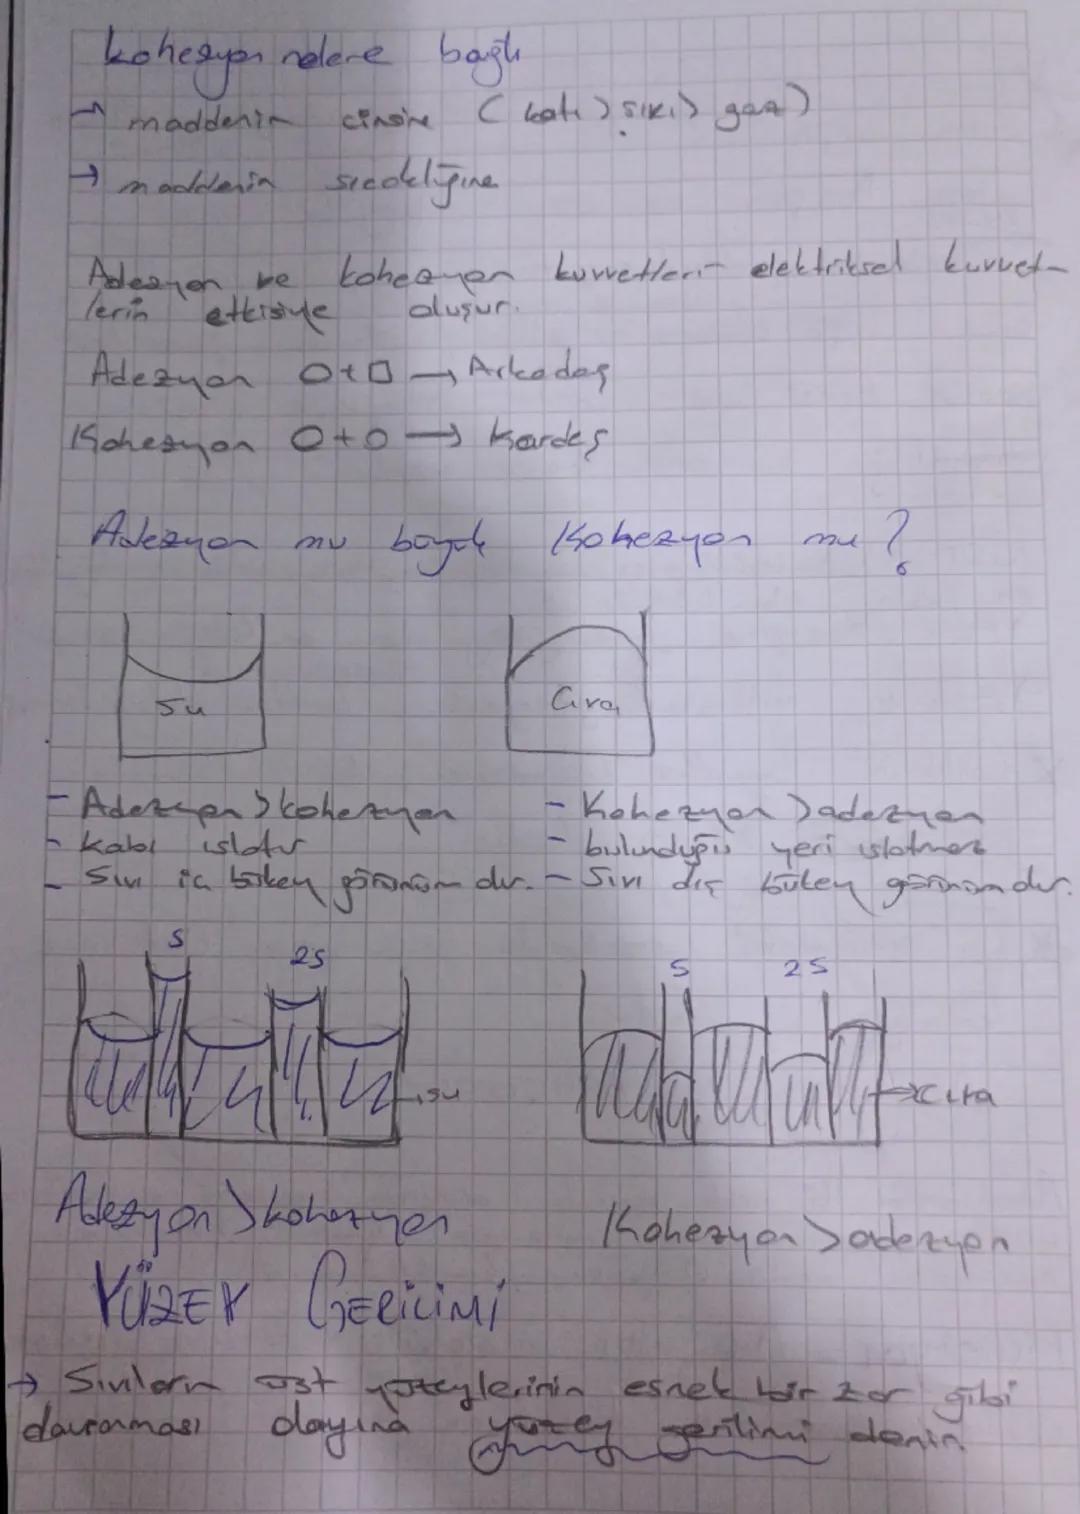 kohezyon nelere bağlı
→ maddenin cinsine (katı > sıvı > gaz)
→ maddenin sıcaklığına
Adezyon ve kohezyon kuvvetleri elektriksel kuvvet-
lerin etkisiyle oluşur.
Adezyon O+□ → Arkadaş
Kohezyon O+O → Kardeş
Adezyon mu büyük Kohezyon mu?
Su
Cıva
- Adezyon > kohezyon
- Kabı ıslatır
- Sıvı iç bükey görünümdür.
- Kohezyon > adezyon
- bulunduğu yeri ıslatmaz
- Sıvı dış bükey görünümdür.
S 2S
su
S 2S
→ cıva
Adezyon > kohezyon
Kohezyon > adezyon
YÜZEY GERİLİMİ
→ Sıvıların üst yüzeylerinin esnek bir zar gibi
davranması olayına yüzey gerilimi denir